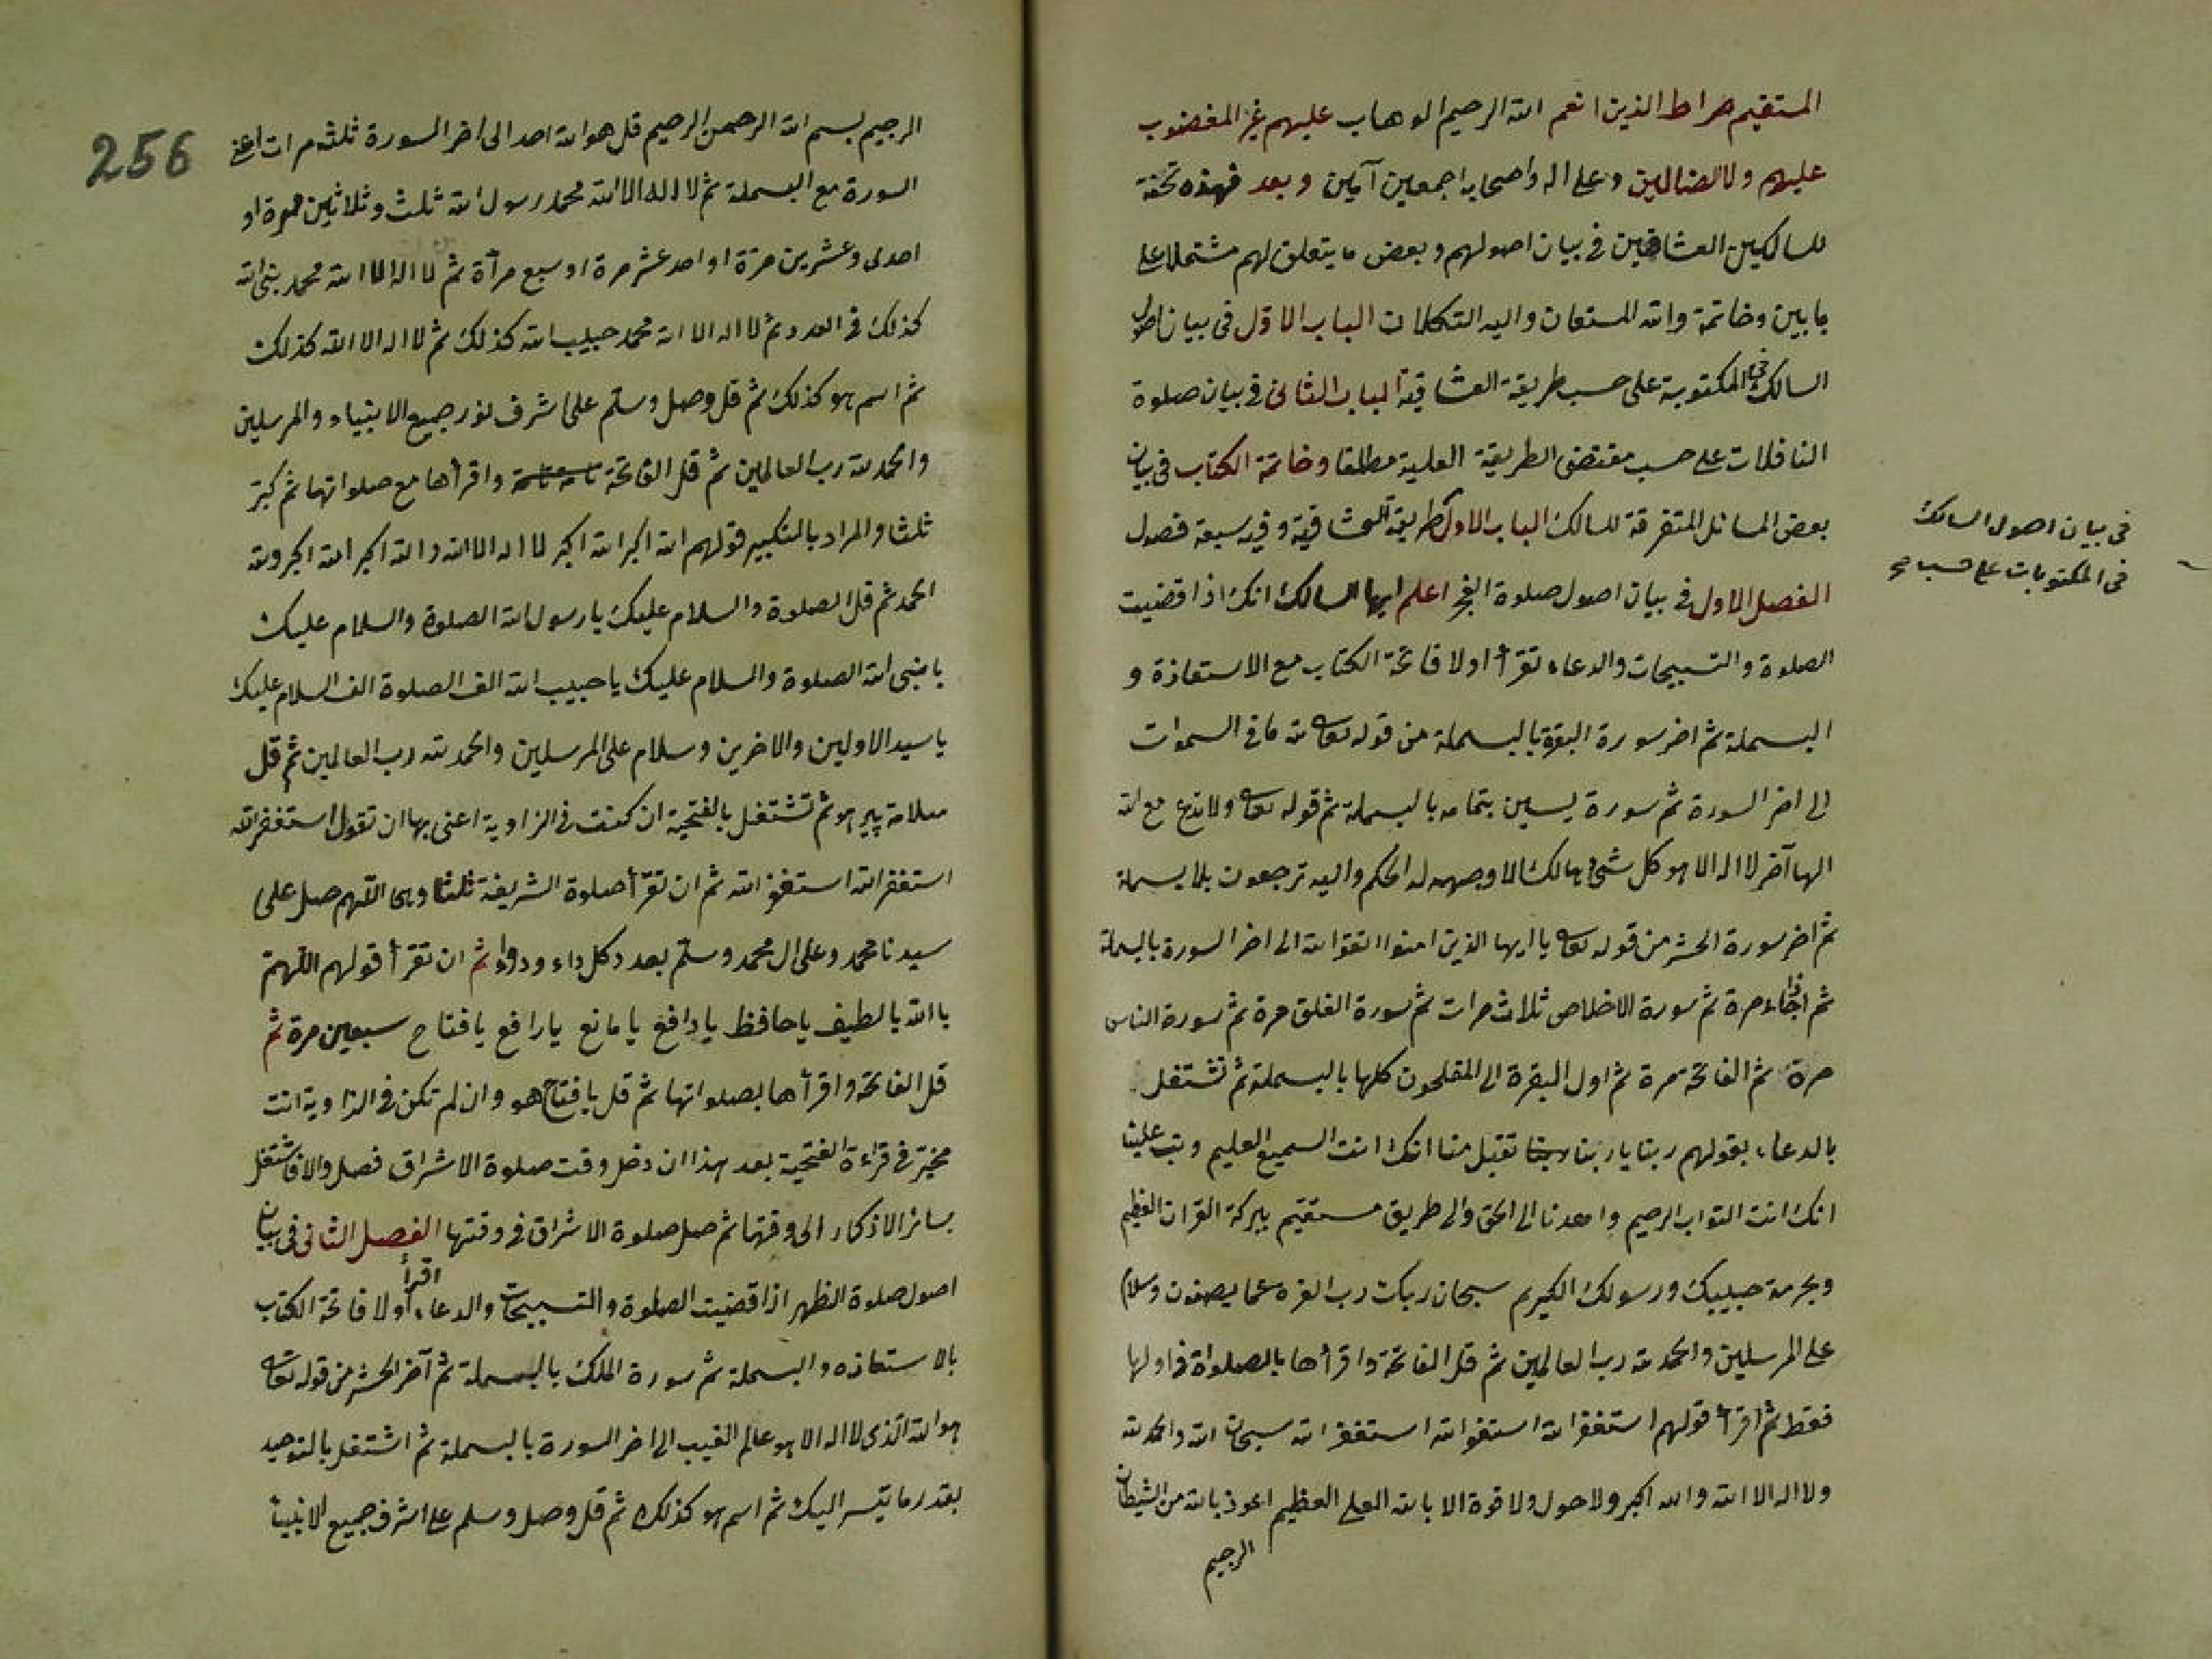 المستقيم صراط الذين انعم الله الرحيم الوهاب عليهم غير المغضوب
عليهم ولا الضالين وعلى اله واصحابه اجمعين آمين وبعد فهذه تحفة
للسالكين العشاقيين في بيان اصولهم وبعض ما يتعلق لهم مشتملا على
بابين وخاتمة والله المستعان واليه التكلان الباب الاول في بيان اصول
السالك في المكتوبة على حسب طريقة العشاقية الباب الثانى في بيان صلوة
النافلات على حسب مقتضى الطريقة العلية مطلقا وخاتمة الكتاب في بيان
بعض المسائل المتفرقة للسالك الباب الاول طريقة العشاقية وفيه سبعة فصول
الفصل الاول في بيان اصول صلوة الفجر اعلم ايها السالك انك اذا قضيت
الصلوة والتسبيحات والدعاء تقرأ اولا فاتحة الكتاب مع الاستعاذة و
البسملة ثم اخر سورة البقرة بالبسملة من قوله تعالى لله ما في السموات
الى اخر السورة ثم سورة يسين بتمامه بالبسملة ثم قوله تعالى ولا تدع مع الله
الها آخر لا اله الا هو كل شئ هالك الا وجهه له الحكم واليه ترجعون بلا بسملة
ثم اخر سورة الحشر من قوله تعالى يا ايها الذين امنوا اتقوا الله الى اخر السورة بالبسملة
ثم اذا جاء مرة ثم سورة الاخلاص ثلاث مرات ثم سورة الفلق مرة ثم سورة الناس
مرة ثم الفاتحة مرة ثم اول البقرة الى المفلحون كلها بالبسملة ثم تشتغل
بالدعاء بقولهم ربنا يا ربنا ربنا تقبل منا انك انت السميع العليم وتب علينا
انك انت التواب الرحيم واهدنا الى الحق والى طريق مستقيم ببركة القران العظيم
وبحرمة حبيبك ورسولك الكريم سبحان ربك رب العزة عما يصفون وسلام
على المرسلين والحمد لله رب العالمين ثم قل الفاتحة واقرأها بالصلواة في اولها
فقط ثم اقرأ قولهم استغفر الله استغفر الله استغفر الله سبحان الله والحمد لله
ولا اله الا الله والله اكبر ولا حول ولا قوة الا بالله العلى العظيم اعوذ بالله من الشيطان
الرجيم
في بيان اصول السالك
في المكتوبات على حسب
256
الرجيم بسم الله الرحمن الرحيم قل هو الله احد الى اخر السورة ثلثه مرات اعنى
السورة مع البسملة ثم لا اله الا الله محمد رسول الله ثلث وثلاثين مرة او
احدى وعشرين مرة او احد عشر مرة او سبع مرأة ثم لا اله الا الله محمد نبى الله
كذلك في العدد ثم لا اله الا الله محمد حبيب الله كذلك ثم لا اله الا الله كذلك
ثم اسم هو كذلك ثم قل وصل وسلم على اشرف نور جميع الانبياء والمرسلين
والحمد لله رب العالمين ثم قل الفاتحة واقرأها مع صلواتها ثم كبر
ثلثا والمراد بالتكبير قولهم الله اكبر الله اكبر لا اله الا الله والله اكبر الله اكبر ولله
الحمد ثم قل الصلوة والسلام عليك يا رسول الله الصلوة والسلام عليك
يا نبى الله الصلوة والسلام عليك يا حبيب الله الف الصلوة الف السلام عليك
يا سيد الاولين والاخرين وسلام على المرسلين والحمد لله رب العالمين ثم قل
سلامة پير هو ثم تشتغل بالفتحية ان كنت في الزاوية اعنى بها ان تقول استغفر الله
استغفر الله استغفر الله ثم ان تقرأ صلوة الشريفة ثلثا وهى اللهم صل على
سيدنا محمد وعلى ال محمد وسلم بعدد كل داء ودواء ثم ان تقرأ قولهم اللهم
يا الله يا لطيف يا حافظ يا دافع يا مانع يا رافع يا فتاح سبعين مرة ثم
قل الفاتحة واقرأها بصلواتها ثم قل يا فتاح هو وان لم تكن في الزاوية انت
مخير في قراءة الفتحية بعد هذا ان دخل وقت صلوة الاشراق فصل والا فاشتغل
بسائر الاذكار الى وقتها ثم صل صلوة الاشراق في وقتها الفصل الثانى في بيان
اصول صلوة الظهر اذا قضيت الصلوة والتسبيحات والدعاء اقرأ اولا فاتحة الكتاب
بالاستعاذه والبسملة ثم سورة الملك بالبسملة ثم آخر الحشر من قوله تعالى
هو الله الذى لا اله الا هو عالم الغيب الى اخر السورة بالبسملة ثم اشتغل بالتوحيد
بقدر ما تيسر اليك ثم اسم هو كذلك ثم قل وصل وسلم على اشرف جميع الانبياء